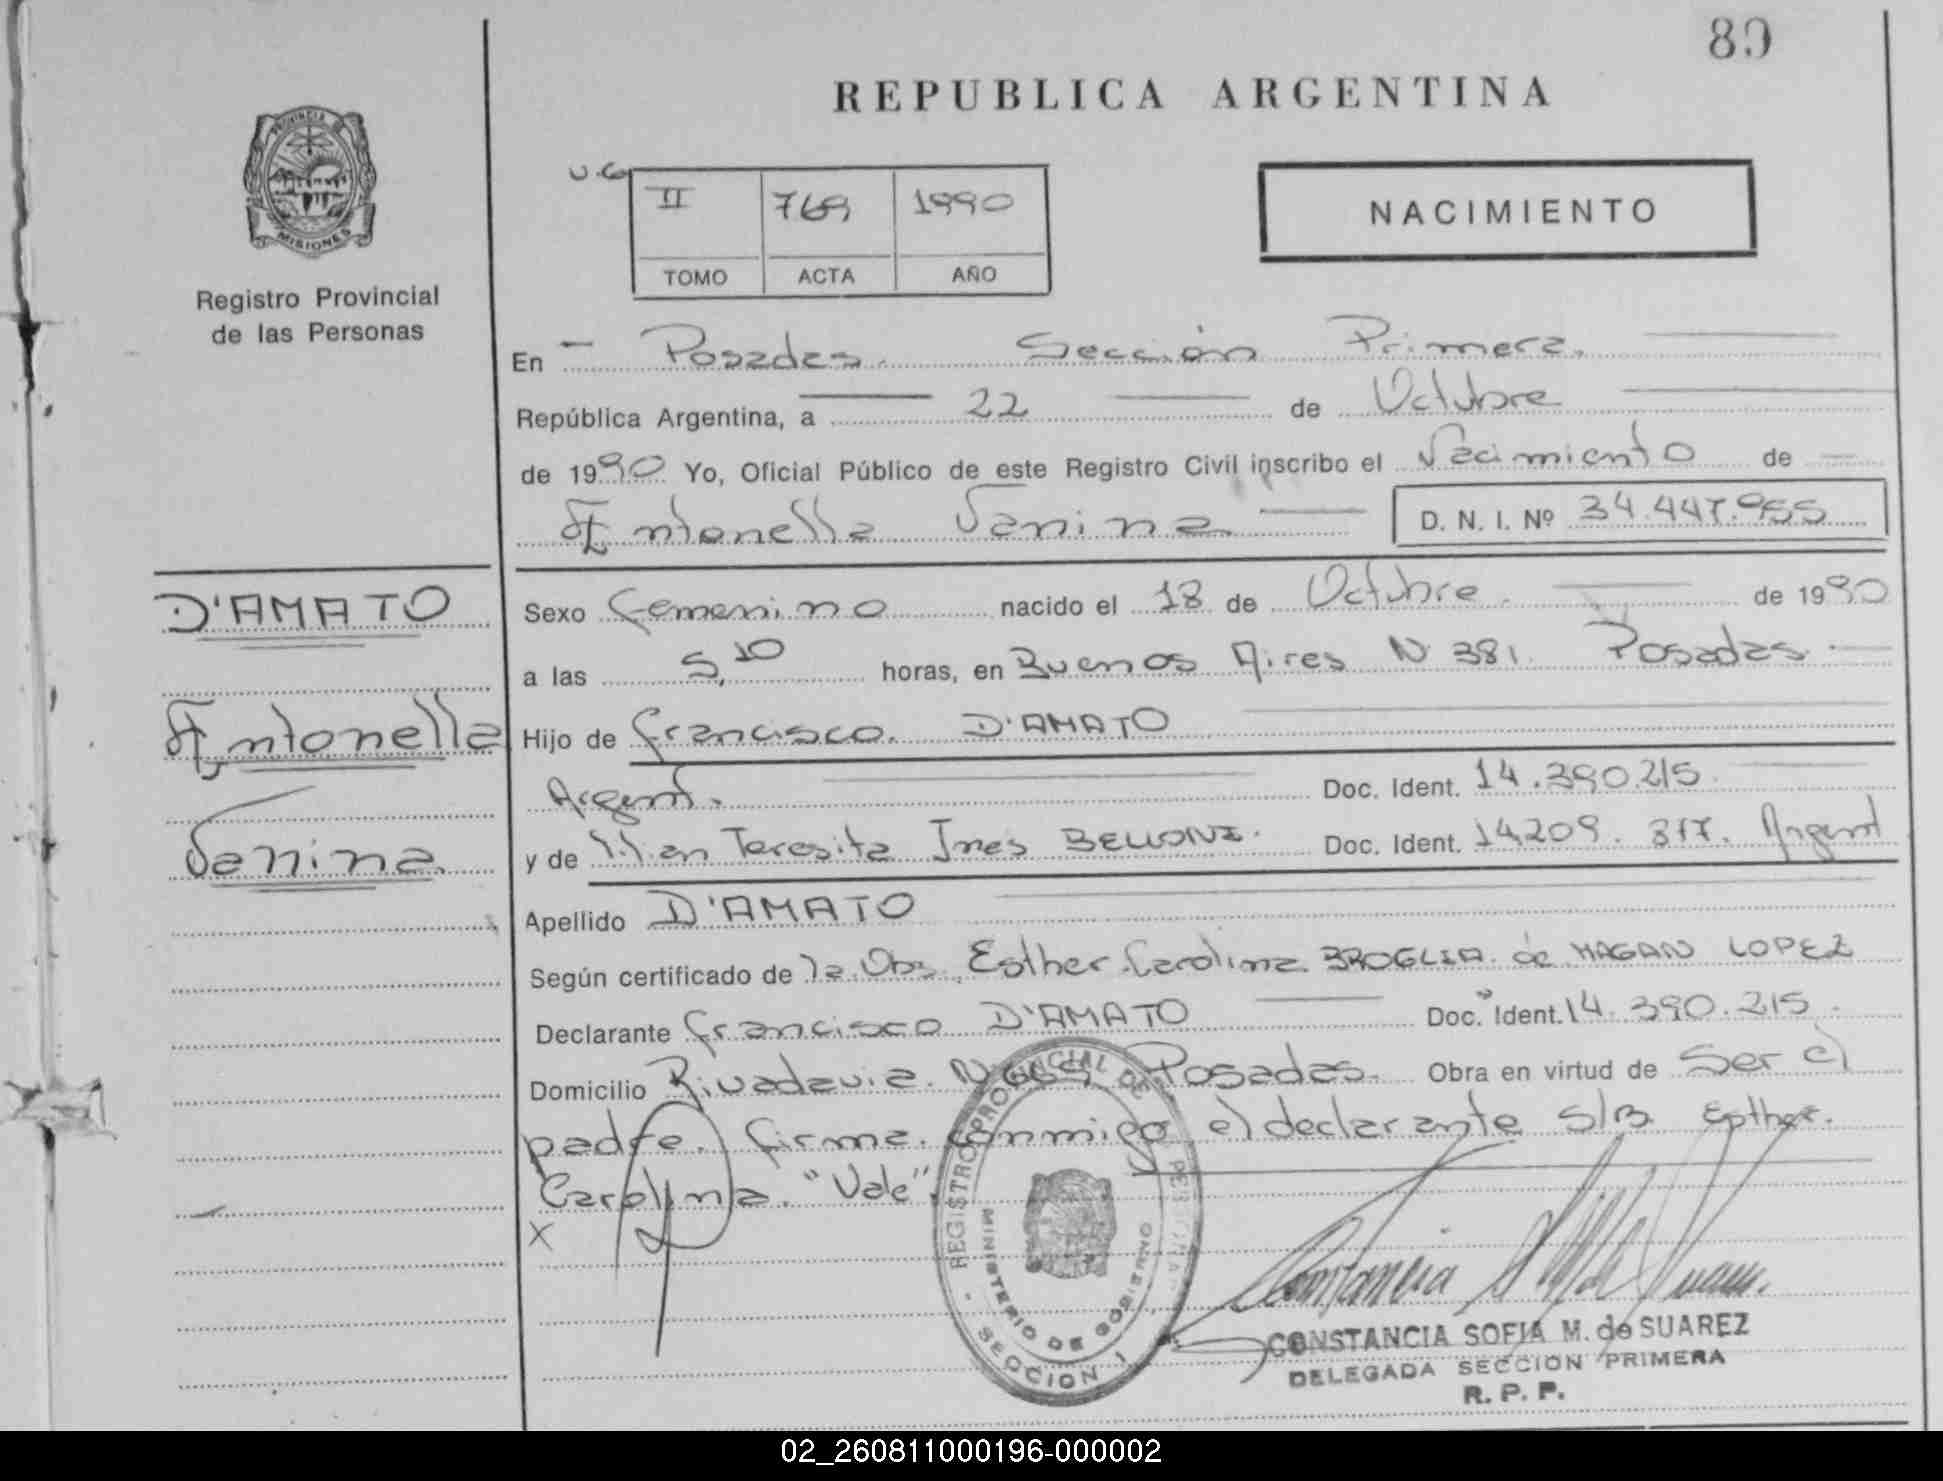 89
REPUBLICA ARGENTINA
PROVINCIA DE
MISIONES
Registro Provincial
de las Personas
II 769 1990
TOMO ACTA AÑO
NACIMIENTO
En Posadas. Sección Primera.
República Argentina, a 22 de Octubre
de 1990 Yo, Oficial Público de este Registro Civil inscribo el Nacimiento de
Antonella Vanina
D. N. I. Nº 34.447.955
D'AMATO
Antonella
Vanina
Sexo femenino nacido el 18 de Octubre. de 1990
a las 5,10 horas, en Buenos Aires N 381. Posadas
Hijo de francisco. D'AMATO
Argent. Doc. Ident. 14.390.215
y de Teresita Ines BELLONE. Doc. Ident. 14.209.317. Argent
Apellido D'AMATO
Según certificado de la Obs. Esther Carolina BROGLIA de MAGAN LOPEZ
Declarante francisco D'AMATO Doc. Ident. 14.390.215.
Domicilio Rivadavia. Posadas. Obra en virtud de Ser el
padre. firma. conmigo el declarante S/B. Esther.
Carolina. "Vale".
X
REGISTRO PROVINCIAL DE PERSONAS
MINISTERIO DE GOBIERNO
SECCION 1
CONSTANCIA SOFIA M. de SUAREZ
DELEGADA SECCION PRIMERA
R. P. P.
02_260811000196-000002